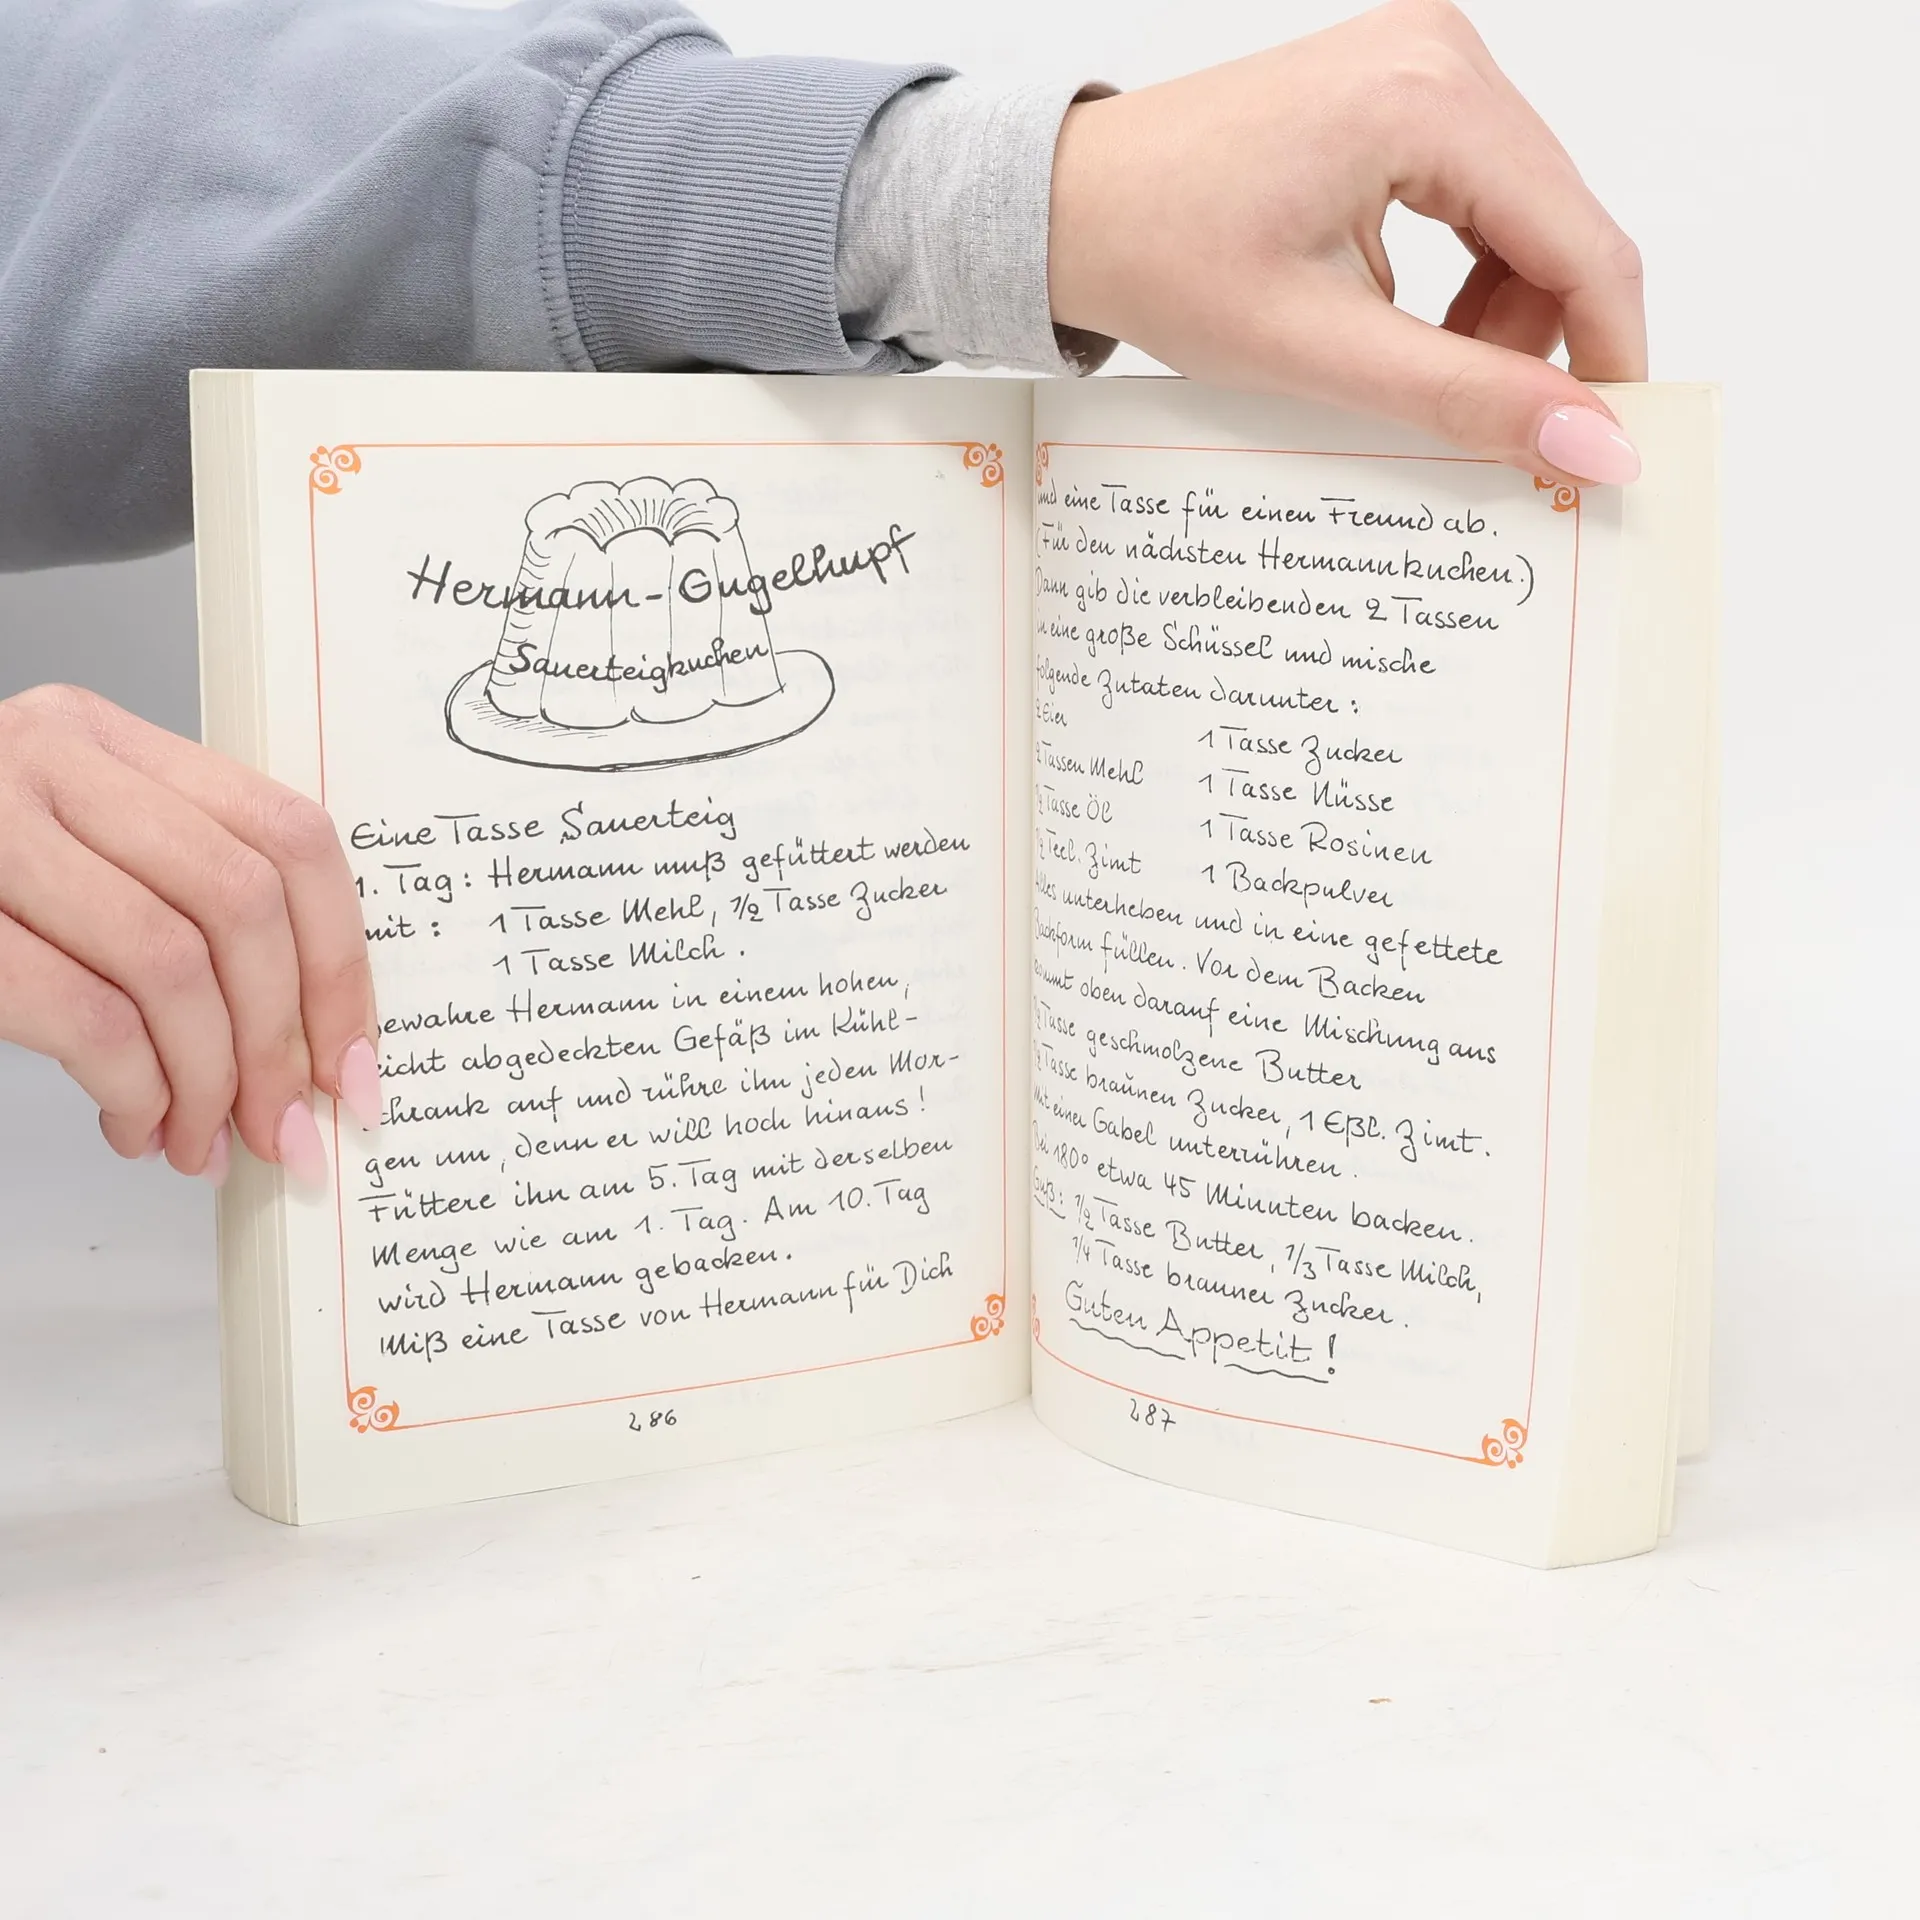 Hermann-Gugelhupf
Sauerteigkuchen
Eine Tasse Sauerteig
1. Tag: Hermann muß gefüttert werden
mit: 1 Tasse Mehl, 1/2 Tasse Zucker
1 Tasse Milch.
bewahre Hermann in einem hohen,
leicht abgedeckten Gefäß im Kühl-
schrank auf und rühre ihn jeden Mor-
gen um, denn er will hoch hinaus!
Füttere ihn am 5. Tag mit derselben
Menge wie am 1. Tag. Am 10. Tag
wird Hermann gebacken.
Miß eine Tasse von Hermann für Dich
286
und eine Tasse für einen Freund ab.
(Für den nächsten Hermannkuchen.)
Dann gib die verbleibenden 2 Tassen
in eine große Schüssel und mische
folgende Zutaten darunter:
2 Eier 1 Tasse Zucker
2 Tassen Mehl 1 Tasse Nüsse
1/2 Tasse Öl 1 Tasse Rosinen
1/2 Teel. Zimt 1 Backpulver
Alles unterheben und in eine gefettete
Backform füllen. Vor dem Backen
kommt oben darauf eine Mischung aus
Tasse geschmolzene Butter
Tasse braunen Zucker, 1 Eßl. Zimt.
Mit einer Gabel unterrühren.
Bei 180° etwa 45 Minuten backen.
Guß: 1/2 Tasse Butter, 1/3 Tasse Milch,
1/4 Tasse brauner Zucker.
Guten Appetit!
287